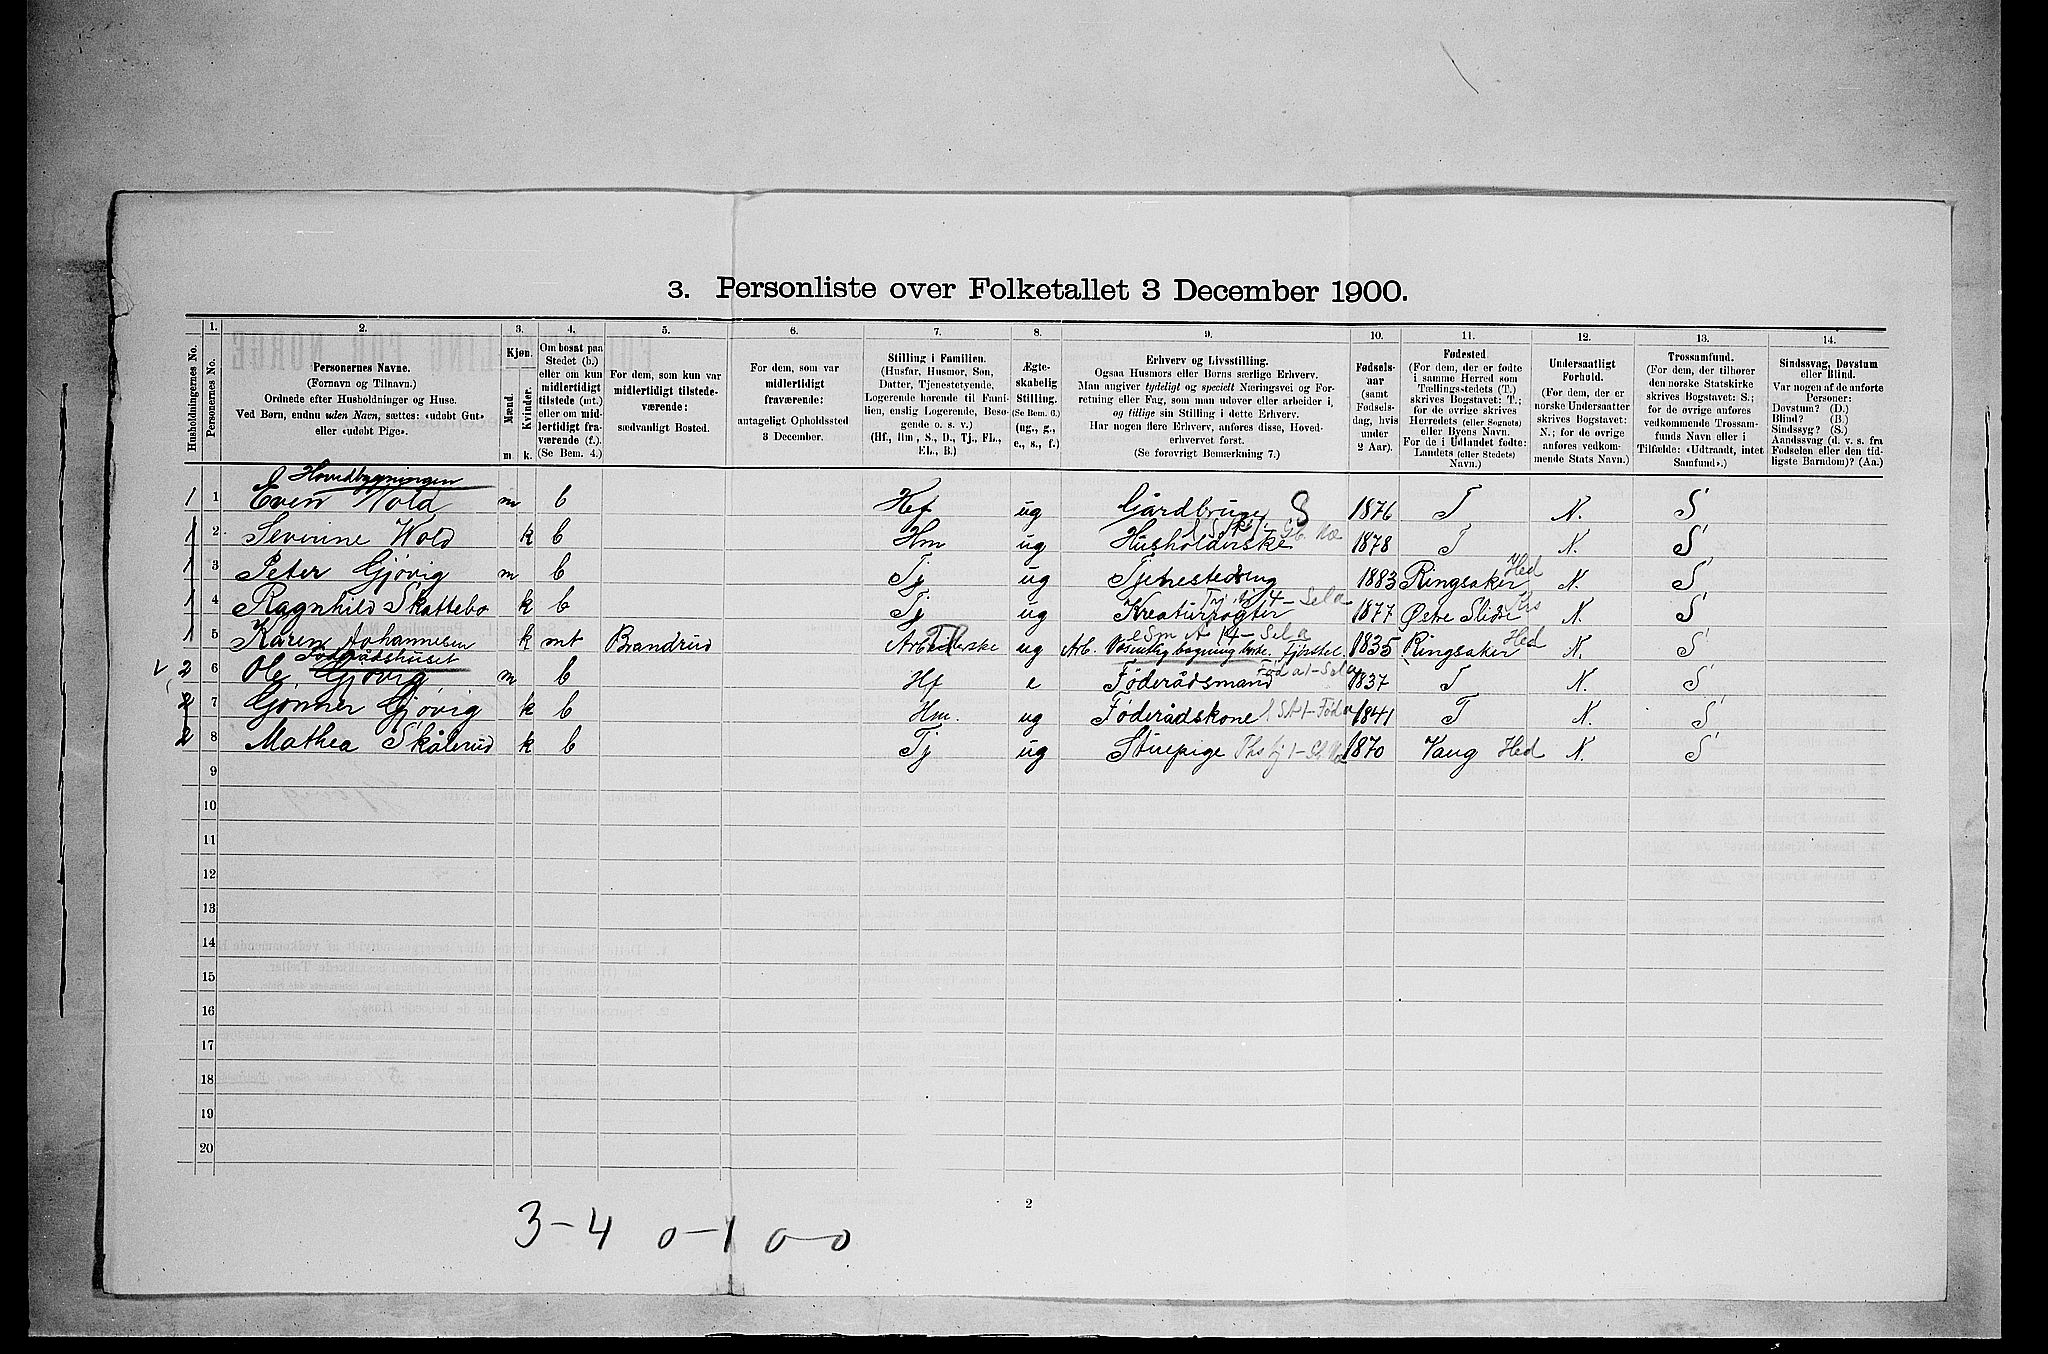 3. Personliste over Folketallet 3 December 1900.
Husholdningernes No.
1.
Personernes No.
2.
Personernes Navne.
(Fornavn og Tilnavn.)
Ordnede efter Husholdninger og Huse.
Ved Børn, endnu uden Navn, sættes: «udøbt Gut»
eller «udøbt Pige».
3.
Kjøn.
Mænd.
Kvinder.
m. k.
4.
Om bosat paa
Stedet (b.)
eller om kun
midlertidigt
tilstede (mt.)
eller om mid-
lertidigt fra-
værende (f.).
(Se Bem. 4.)
5.
For dem, som kun var
midlertidigt tilstede-
værende:
sædvanligt Bosted.
6.
For dem, som var
midlertidigt
fraværende:
antageligt Opholdssted
3 December.
7.
Stilling i Familien.
(Husfar, Husmor, Søn,
Datter, Tjenestetyende,
Logerende hørende til Fami-
lien, enslig Logerende, Besø-
gende o. s. v.)
(Hf., Hm., S., D., Tj., FL.,
EL., B.)
8.
Ægte-
skabelig
Stilling.
(Se Bem. 6.)
(ug., g.,
e., s., f.)
9.
Erhverv og Livsstilling.
Ogsaa Husmors eller Børns særlige Erhverv.
Man angiver tydeligt og specielt Næringsvei og For-
retning eller Fag, som man udøver eller arbeider i,
og tillige sin Stilling i dette Erhverv.
Har nogen flere Erhverv, anføres disse, Hoved-
erhvervet først.
(Se forøvrigt Bemærkning 7.)
10.
Fødsels-
aar
(samt
Fødsels-
dag, hvis
under
2 Aar).
11.
Fødested.
(For dem, der er fødte
i samme Herred som
Tællingsstedet (T.)
skrives Bogstavet: T.;
for de øvrige skrives
Herredets (eller Sognets)
eller Byens Navn.
For de i Udlandet fødte:
Landets (eller Stedets)
Navn.)
12.
Undersaatligt
Forhold.
(For dem, der er
norske Undersaatter
skrives Bogstavet:
N.; for de øvrige
anføres vedkom-
mende Stats Navn.)
13.
Trossamfund.
(For dem, der tilhører
den norske Statskirke
skrives Bogstavet: S.;
for de øvrige anføres
vedkommende Trossam-
funds Navn eller i
Tilfælde: «Udtraadt, intet
Samfund».)
14.
Sindssvag, Døvstum
eller Blind.
Var nogen af de anførte
Personer:
Døvstum? (D.)
Blind? (B.)
Sindssyg? (S.)
Aandssvag (d. v. s. fra
Fødselen eller den tid-
ligste Barndom)? (Aa.)
Hovedbygningen
1 1 Even Vold m b Hf ug Gårdbruger S 1876 T N. S
1 2 Severine Vold k b Hm ug Husholderske 1878 T N. S
1 3 Peter Gjøvig m b Tj ug Tjenestedreng 1883 Ringsaker Hed N. S
1 4 Ragnhild Skattebo k b Tj ug Kreaturrøgter 1877 Østre Slidre N. S
1 5 Karen Johannesen k mt Brandrud Arbeiderske ug Arb. 1835 Ringsaker Hed N. S
Føderådshuset
v 2 6 Ole Gjøvig m b Hf e Føderådsmand 1837 T N. S
2 7 Gunner Gjøvig k b Hm. ug Føderådskone 1841 T N. S
2 8 Mathea Skålerud k b Tj ug Stuepige 1870 Vang Hed N. S
9
10
11
12
13
14
15
16
17
18
19
20
2
3-4 0-1 0-0